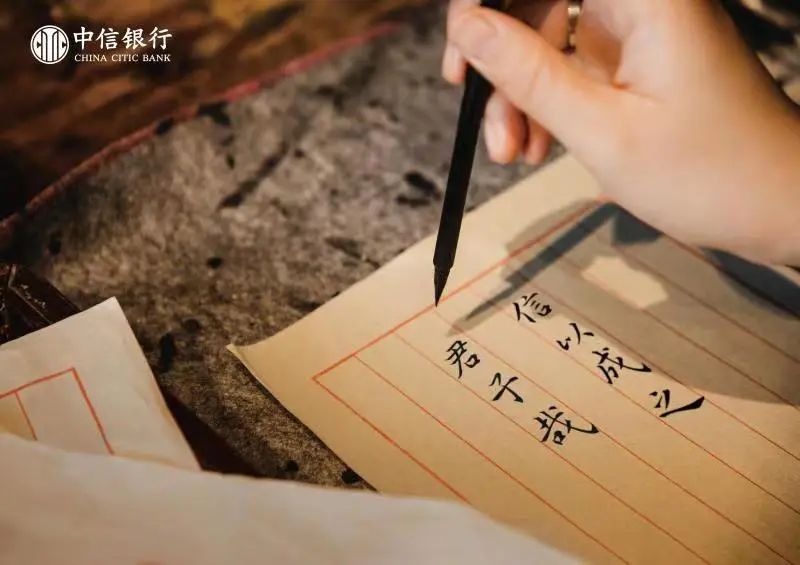 中信银行
CHINA CITIC BANK
信以成之
君子哉